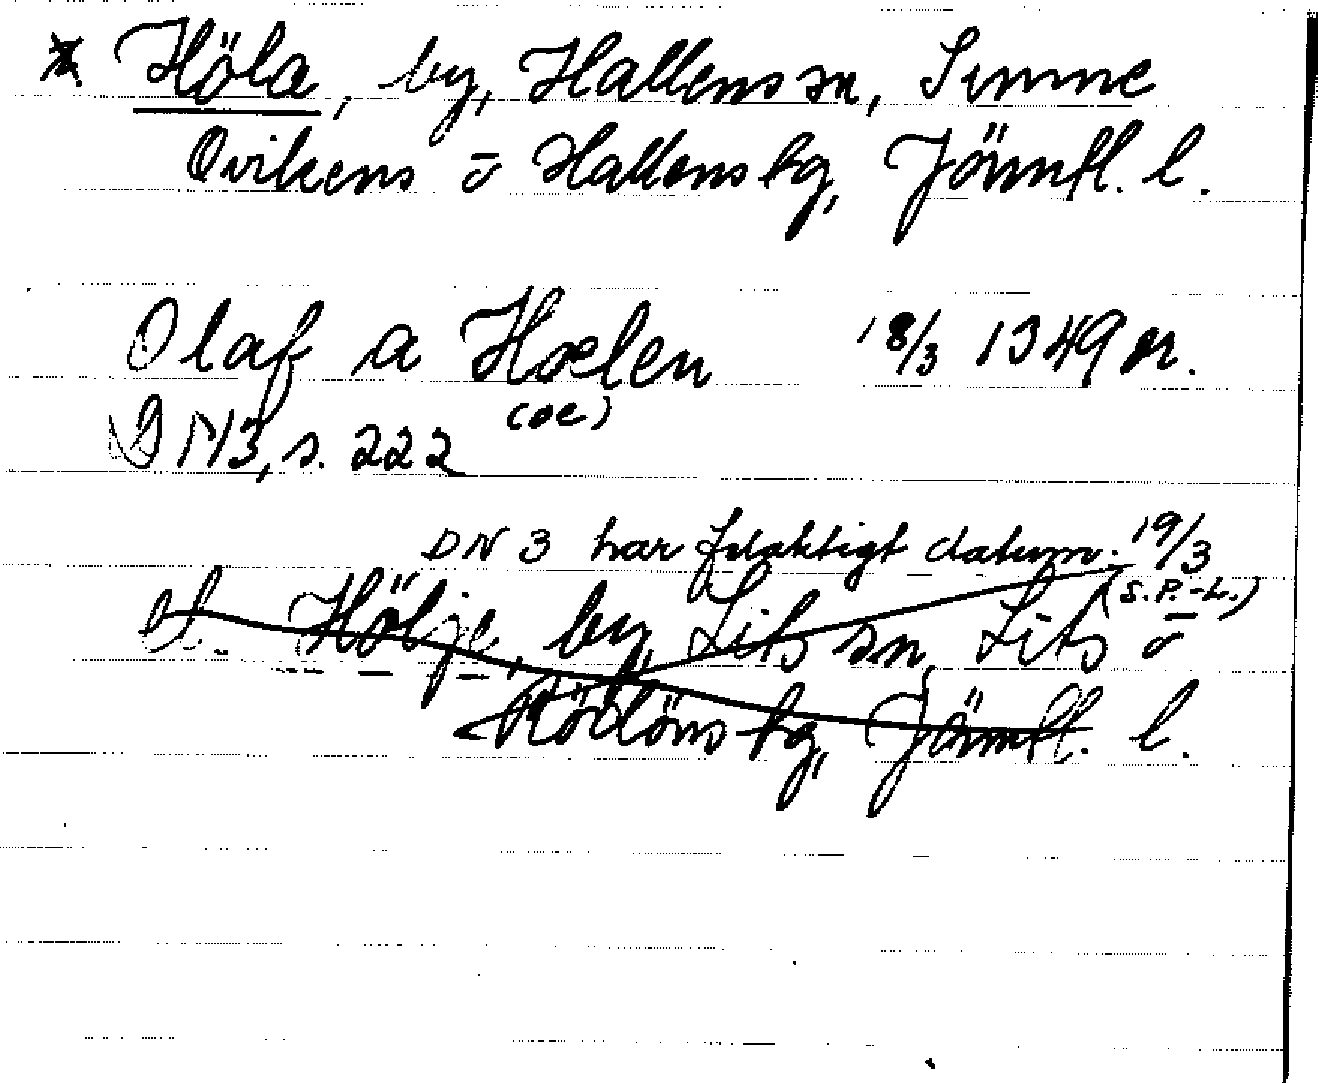 * Höla, by, Hallens sn, Sunne
Ovikens o Hallens tg, Jämtl. l.
Olaf a Hœlen 18/3 1349 or.
(oe)
DN3, s. 222
DN 3 har felaktigt datum: 19/3
(S.P.-L.)
el. Hölje, by, Lits sn, Lits o
Rödöns tg, Jämtl. l.